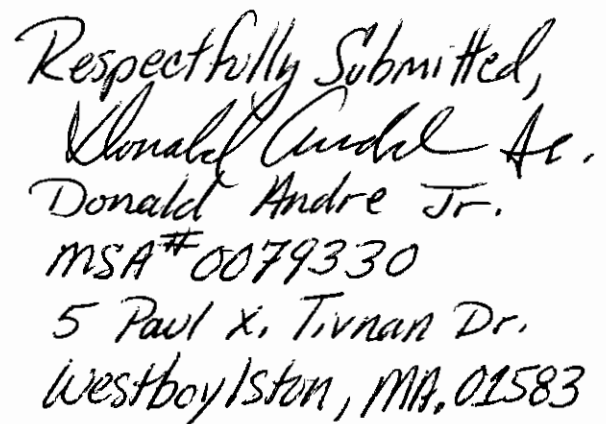 Respectfully Submitted,
Donald Andre Jr.
Donald Andre Jr.
MSA# 0079330
5 Paul X. Tivnan Dr.
West boylston, MA. 01583